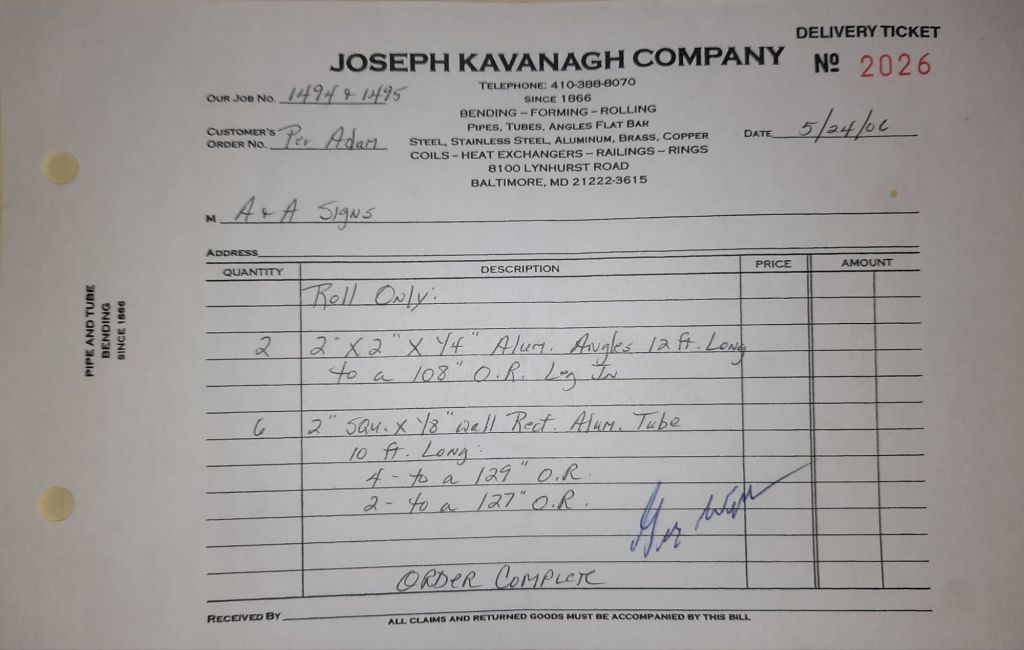 DELIVERY TICKET
JOSEPH KAVANAGH COMPANY
Nº 2026
TELEPHONE: 410-388-8070
OUR JOB NO. 1494 & 1495
SINCE 1866
BENDING – FORMING – ROLLING
PIPES, TUBES, ANGLES FLAT BAR
CUSTOMER'S ORDER NO. Per Adam
DATE 5/24/06
STEEL, STAINLESS STEEL, ALUMINUM, BRASS, COPPER
COILS – HEAT EXCHANGERS – RAILINGS – RINGS
8100 LYNHURST ROAD
BALTIMORE, MD 21222-3615
M A & A Signs
ADDRESS
QUANTITY DESCRIPTION PRICE AMOUNT
Roll Only:
2 2" X 2" X 1/4" Alum. Angles 12 ft. Long
to a 108" O.R. Leg In
6 2" squ. X 1/8" wall Rect. Alum. Tube
10 ft. Long:
4 - to a 129" O.R.
2 - to a 127" O.R.
ORDER COMPLETE
RECEIVED BY
ALL CLAIMS AND RETURNED GOODS MUST BE ACCOMPANIED BY THIS BILL
PIPE AND TUBE
BENDING
SINCE 1866